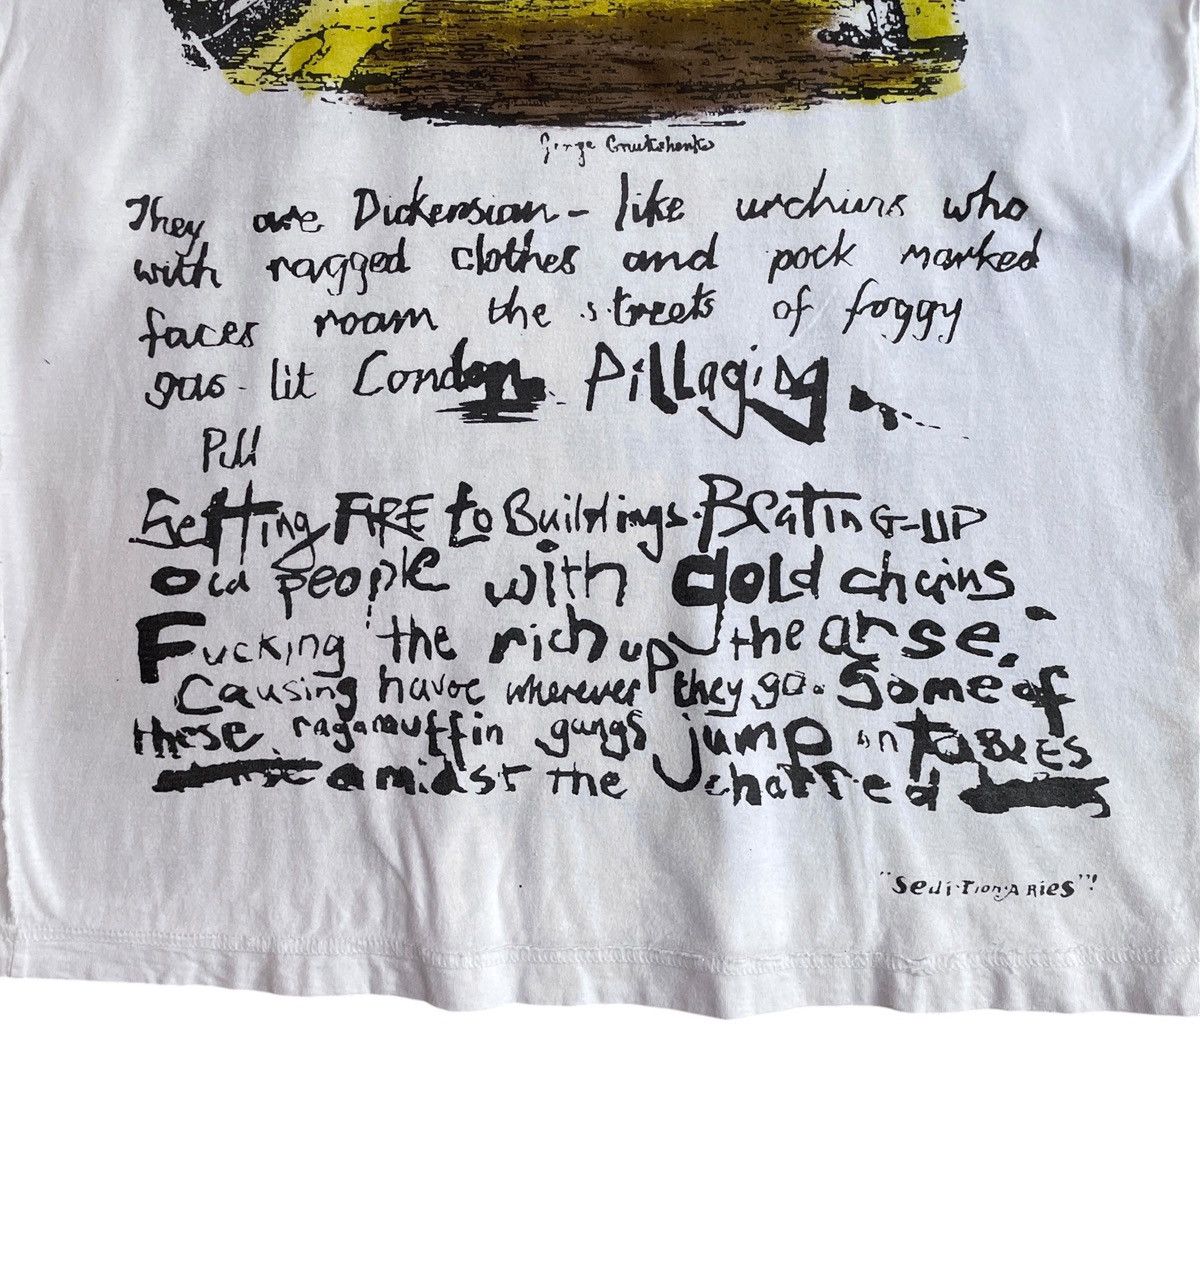 They are Dickensian - like urchins who
with ragged clothes and pock marked
faces roam the streets of foggy
gas - lit London Pillaging
Pill
Setting FIRE to Buildings. BEATING-UP
Old people with gold chains.
Fucking the rich up the arse.
Causing havoc wherever they go. Some of
these ragamuffin gangs jump on TABLES
amidst the charred
"SediTionAries"!